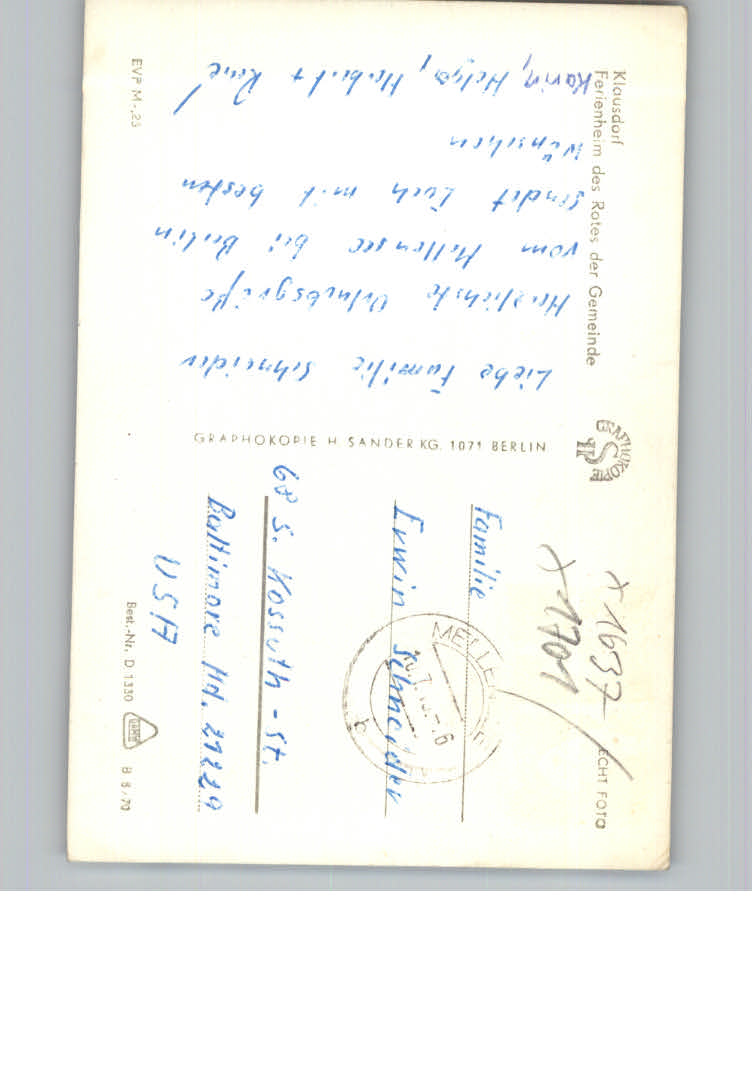 Klausdorf
Ferienheim des Rates der Gemeinde
Liebe Familie Schneider
Herzlichste Urlaubsgrüße
vom Mellensee bei Berlin
sendet Euch mit besten
Wünschen
Karin, Helga, Herbert + René
EVP M -,25
GRAPHOKOPIE H. SANDER KG. 1071 BERLIN
GRAPHOKOPIE
HS
x 1637
x 1701
ECHT FOTO
MELLEN
b
Familie
Erwin Schneider
68 S. Kossuth-St.
Baltimore Md. 21229
USA
Best.-Nr. D 1330
B 8/70